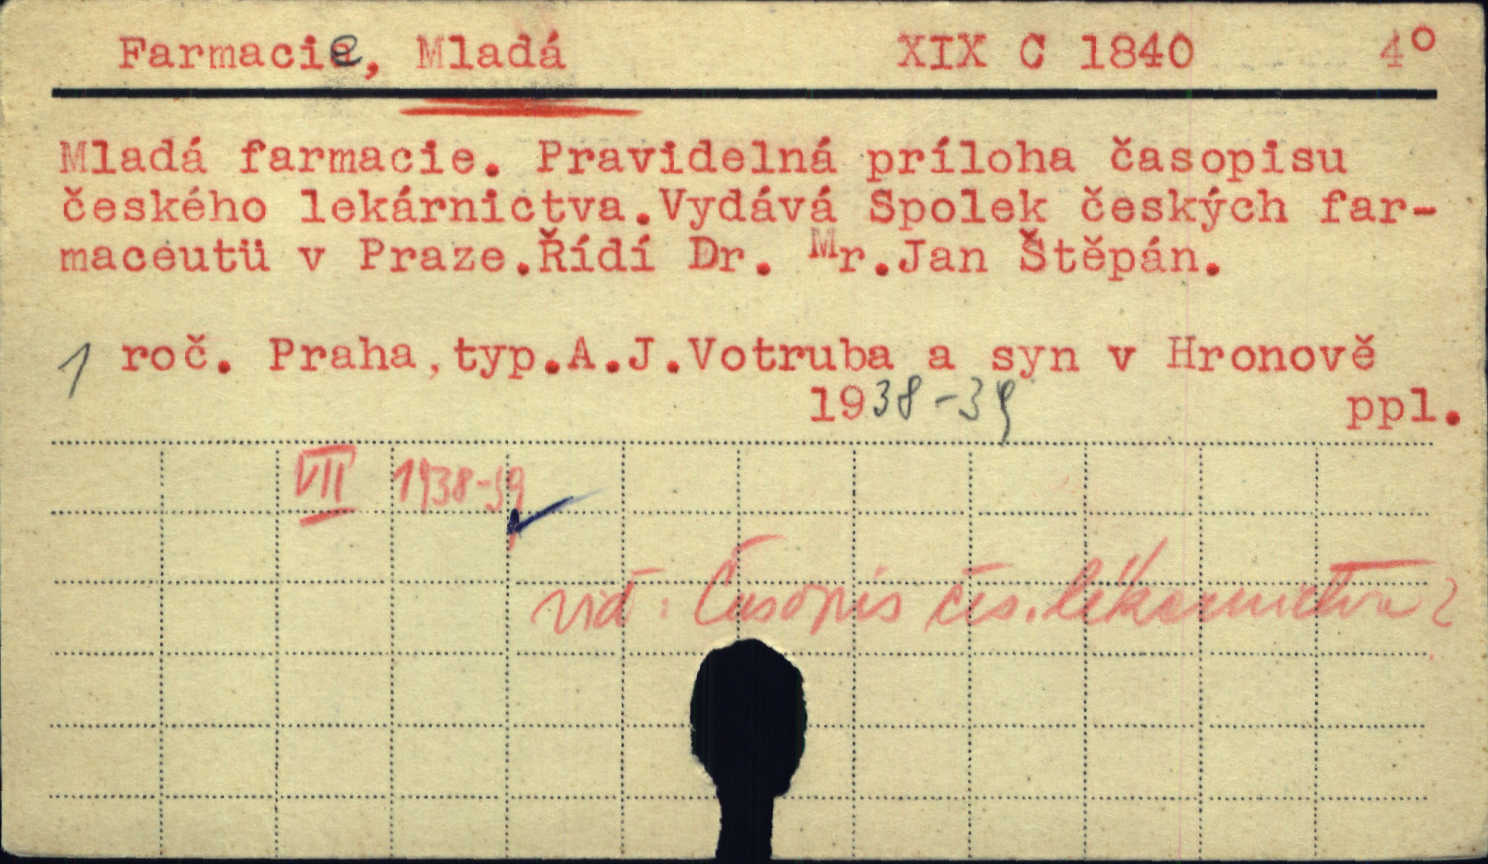 Farmacie, Mladá XIX C 1840 4°
Mladá farmacie. Pravidelná príloha časopisu
českého lekárnictva.Vydává Spolek českých far-
maceutü v Praze.Řídí Dr. Mr.Jan Štěpán.
1 roč. Praha,typ.A.J.Votruba a syn v Hronově
1938-39 ppl.
VII 1938-39
viď: Časopis čes. lékarnictva